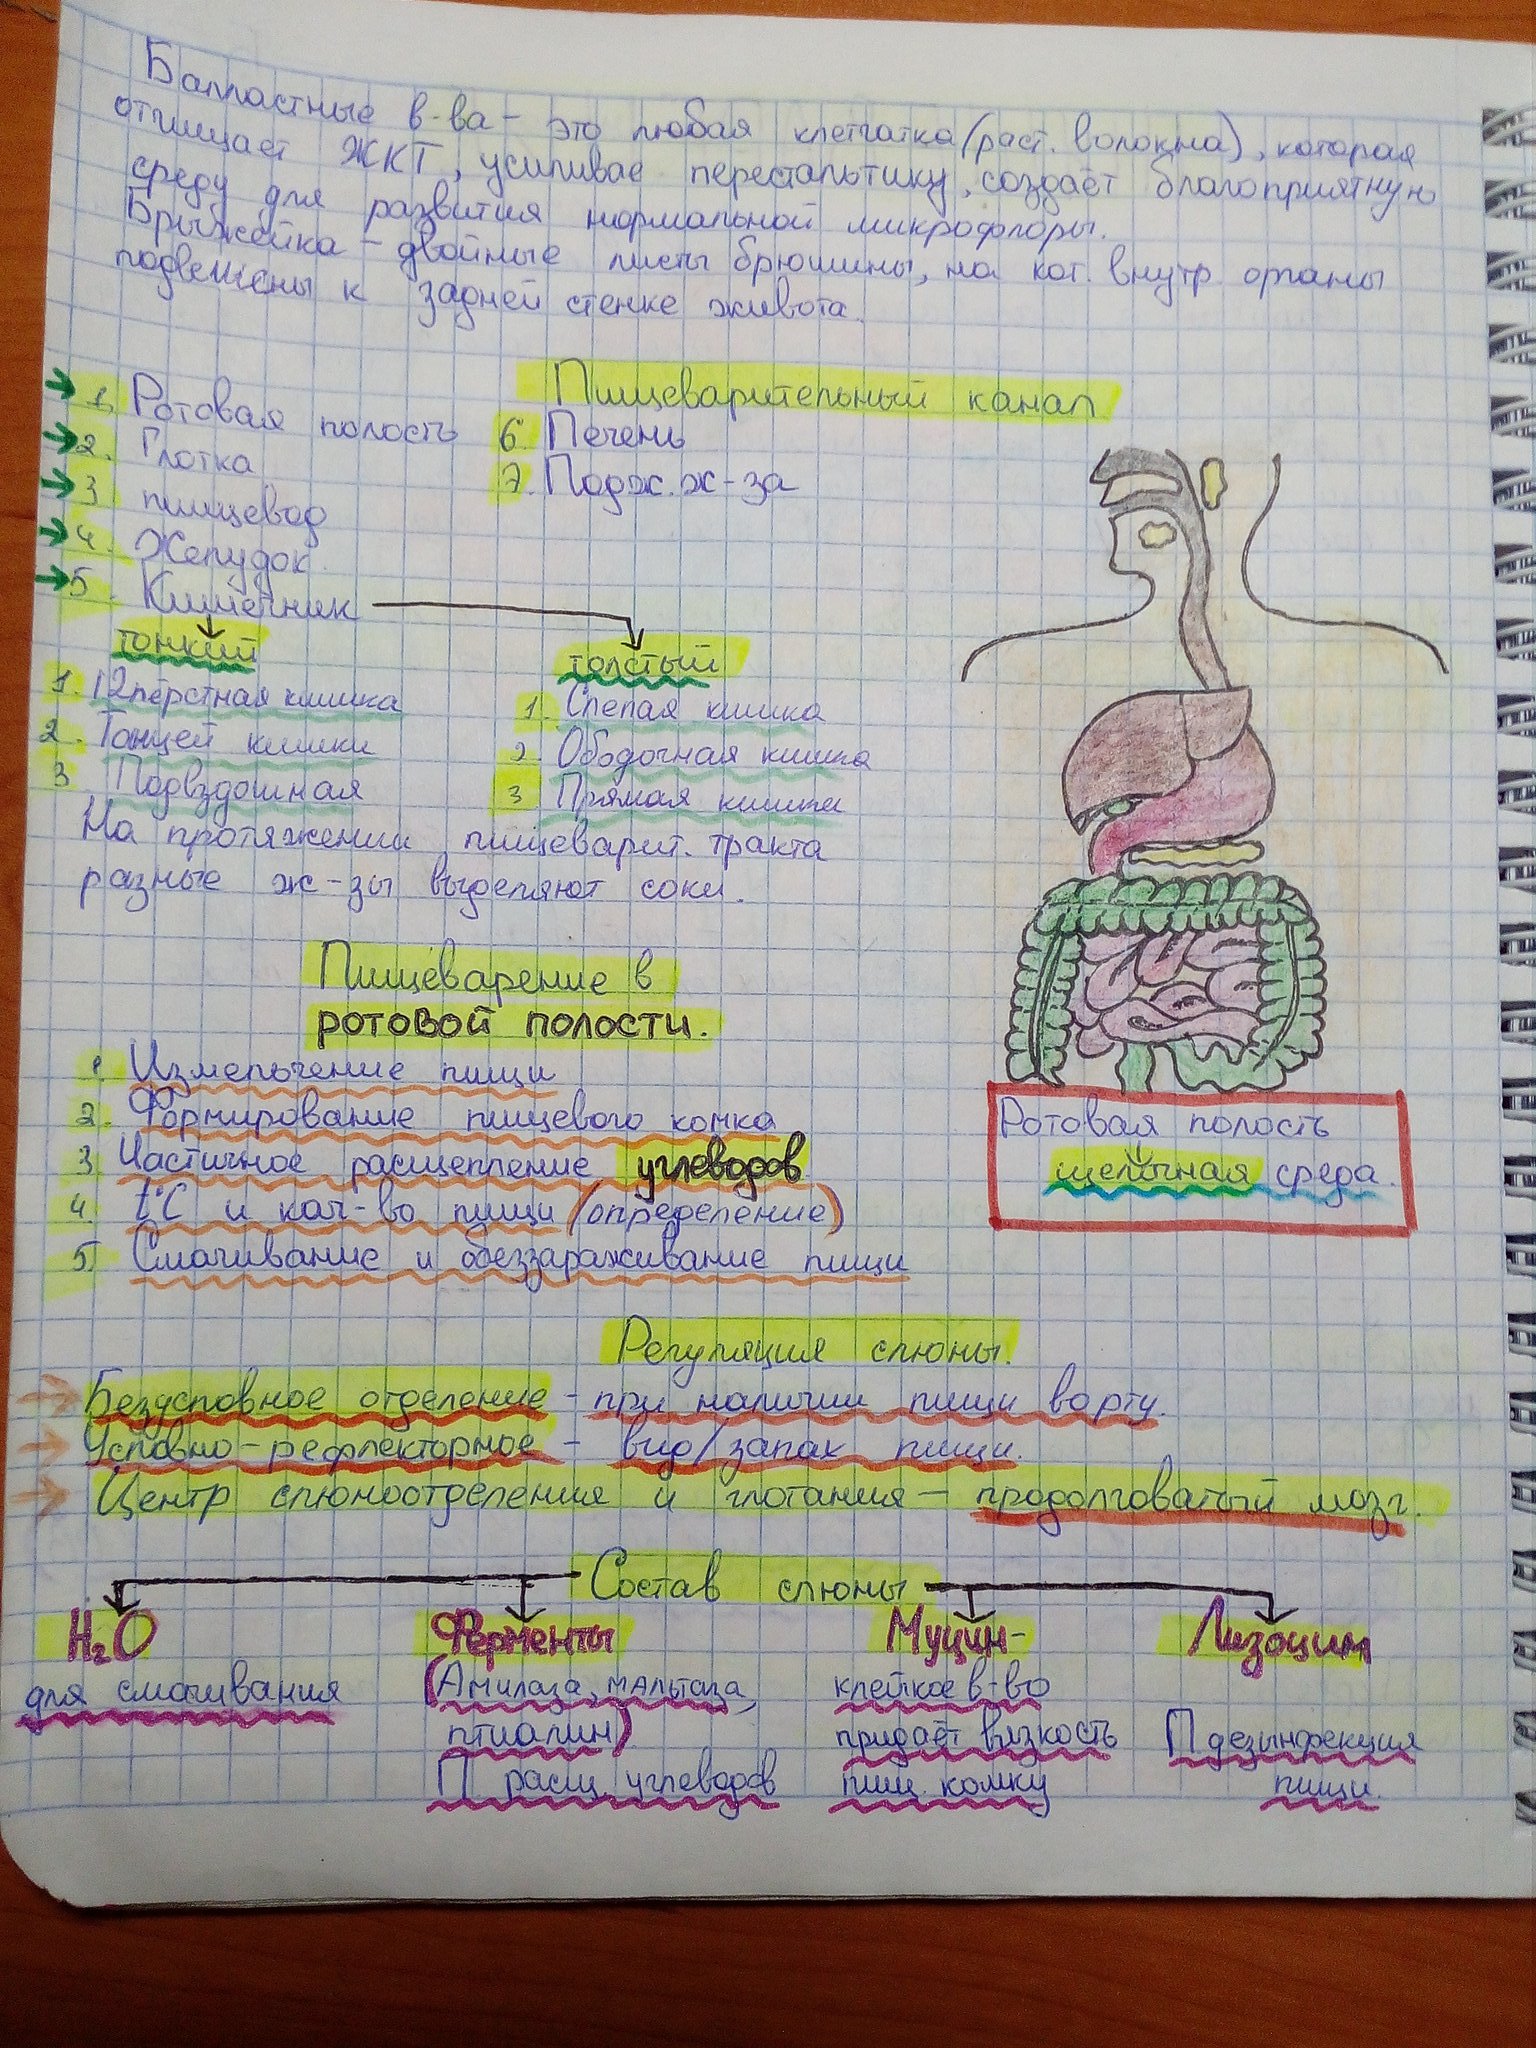 Балластные в-ва - это любая клетчатка (раст. волокна), которая
отчищает ЖКТ, усиливае перестальтику, создаёт благоприятную
среду для развития нормальной микрофлоры.
Брыжейка - двойные листы брюшины, на кот. внутр органы
подвешены к задней стенке живота.
Пищеварительный канал
1. Ротовая полость
2. Глотка
3 пищевод
4. Желудок
5. Кишечник
6. Печень
7. Подж. ж-за
тонкий
1. 12перстная кишка
2. Тощей кишки
3 Подвздошная
толстый
1. Слепая кишка
2 Ободочная кишка
3 Прямая кишки
На протяжении пищеварит. тракта
разные ж-зы выделяют соки.
Пищеварение в
ротовой полости.
1 Измельчение пищи
2. Формирование пищевого комка
3 Частичное расщепление углеводов
4. t°C и кол-во пищи (определение)
5 Смачивание и обеззараживание пищи
Ротовая полость
щелочная среда.
Регуляция слюны.
Безусловное отделение - при наличии пищи во рту.
Условно-рефлекторное - вид/запах пищи.
Центр слюноотделения и глотания - продолговатый мозг.
Состав слюны
H₂O
для смачивания
Ферменты
(Амилаза, мальтаза,
птиалин)
П расщ. углеводов
Муцин-
клейкое в-во
придаёт вязкость
пищ. комку
Лизоцим
П дезынфекция
пищи.